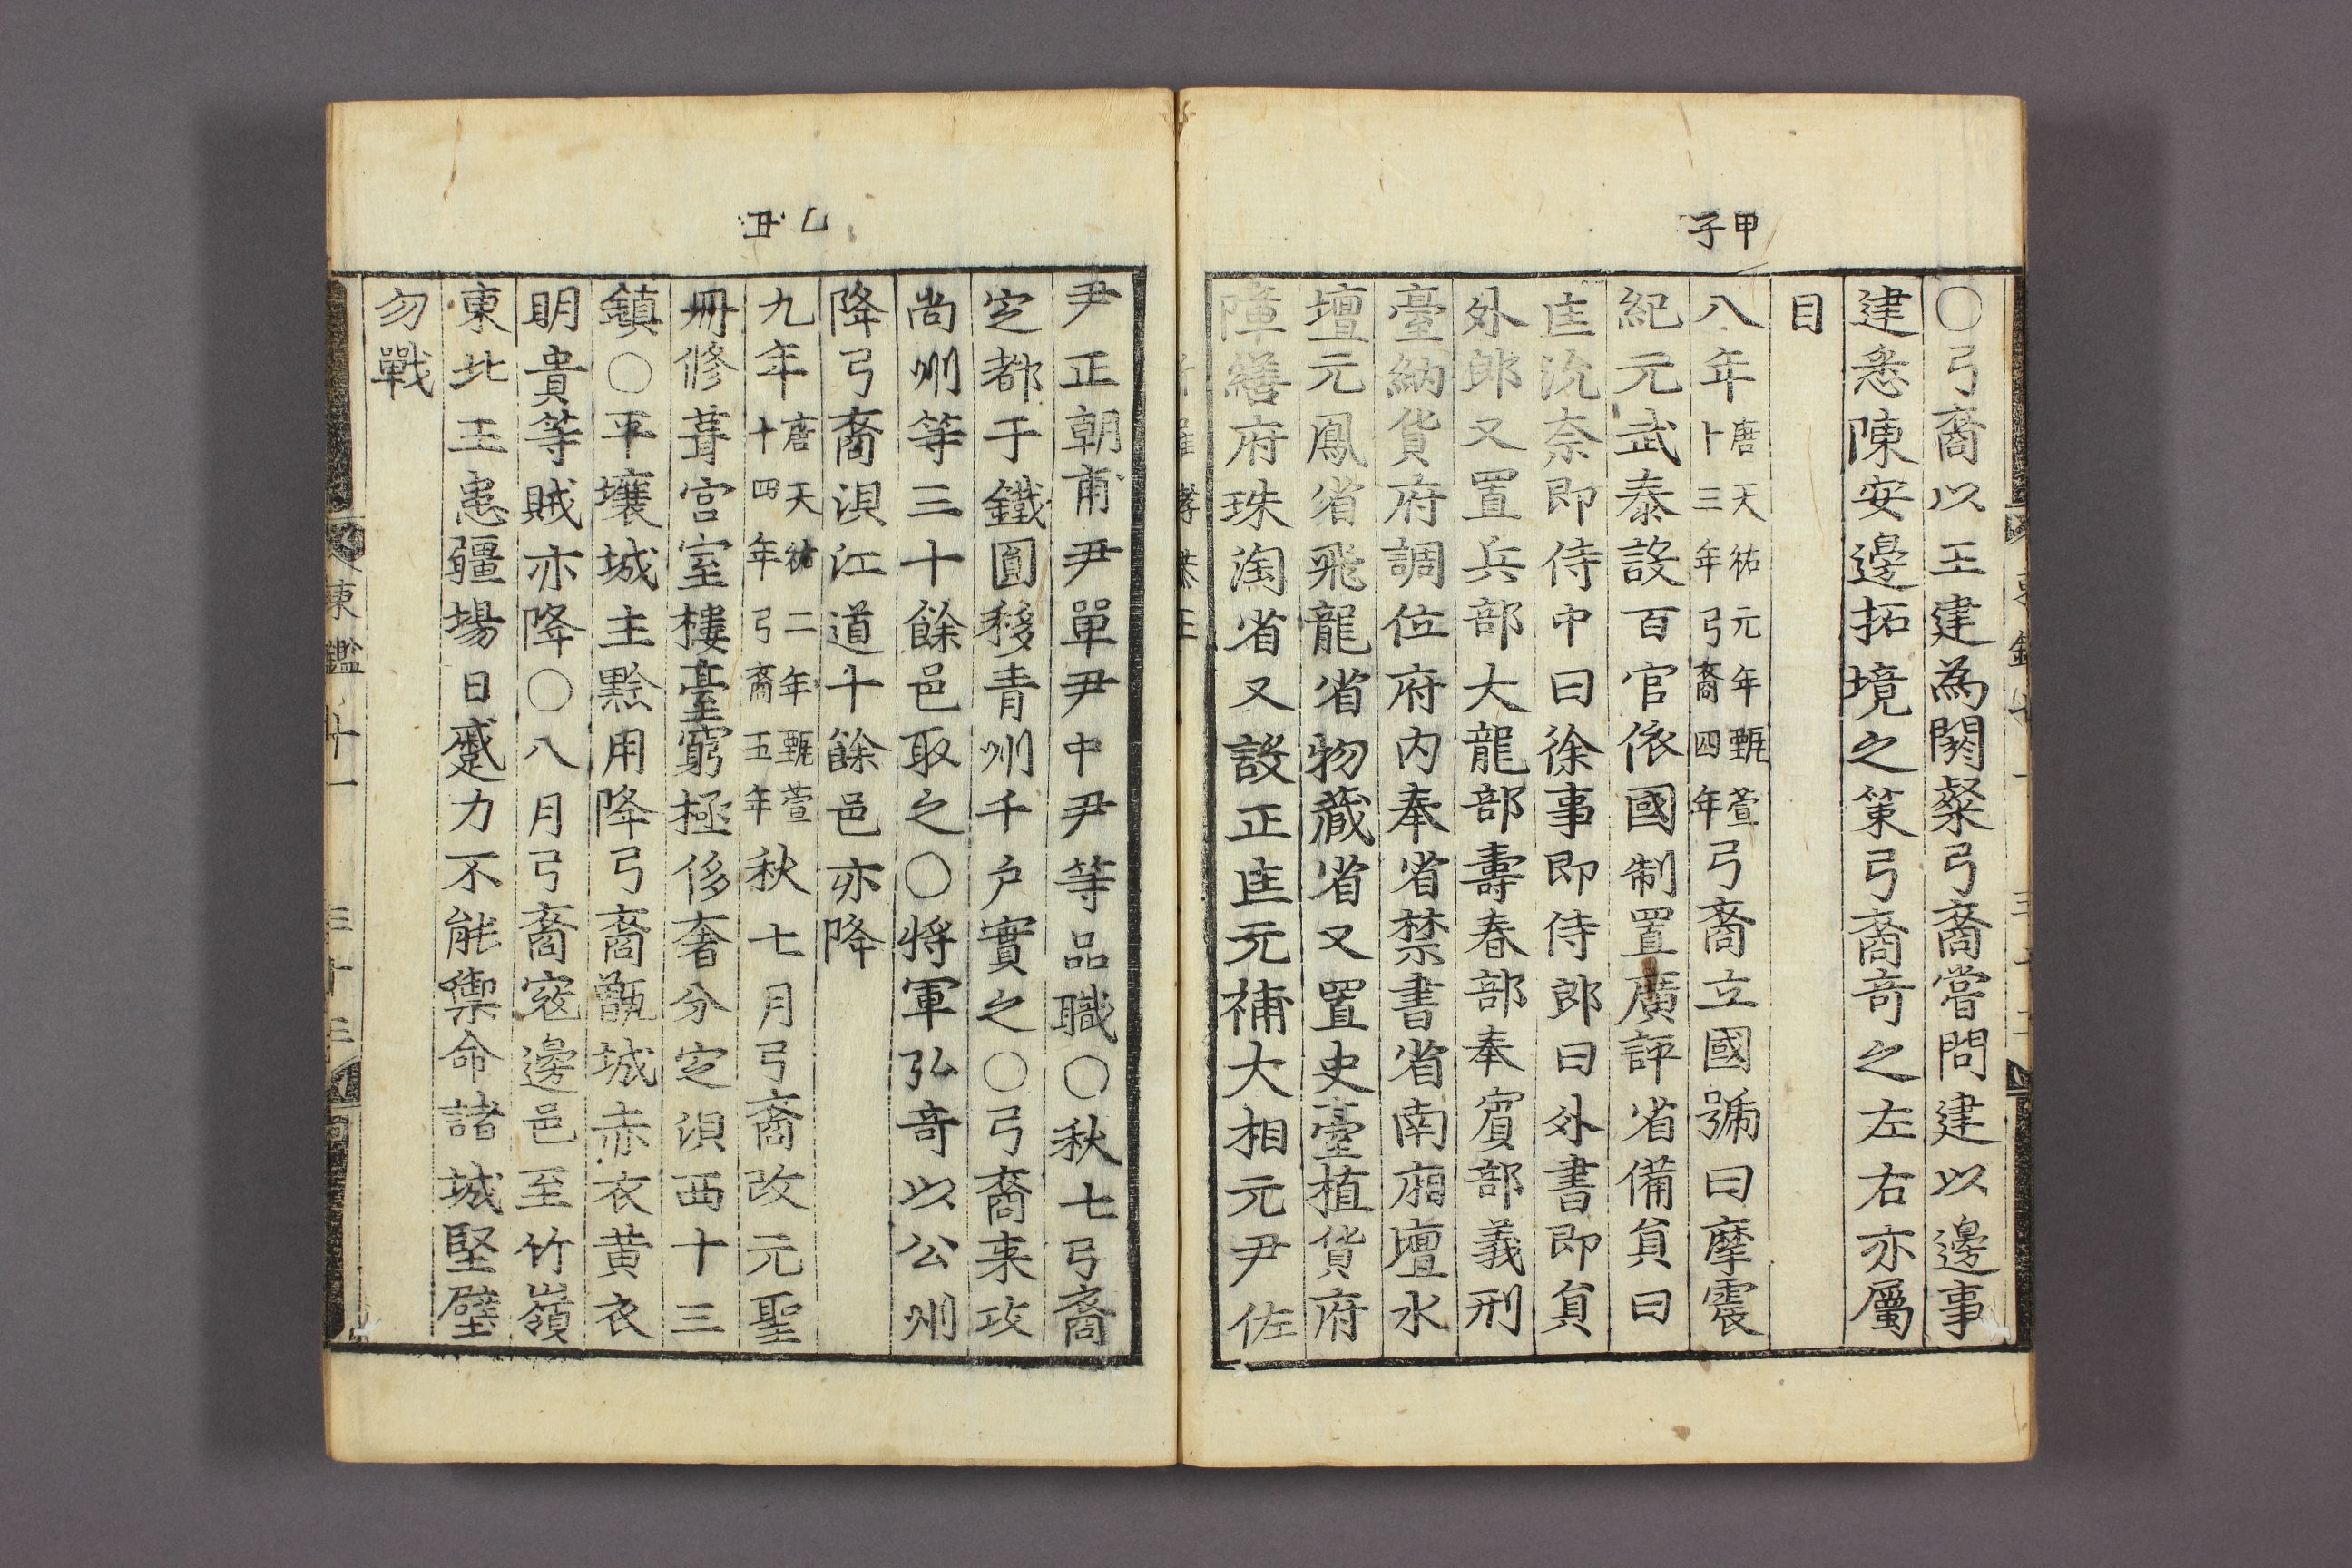 甲子
○弓裔以王建為閼粲弓裔嘗問建以邊事
建悉陳安邊拓境之策弓裔竒之左右亦屬
目
八年唐天祐元年甄萱十三年弓裔四年弓裔立國號曰摩震
紀元武泰設百官依國制置廣評省備負曰
匡治奈即侍中曰徐事即侍郎曰外書即負
外郎又置兵部大龍部壽春部奉賓部義刑
臺納貨府調位府內奉省禁書省南廂壇水
壇元鳳省飛龍省物藏省又置史臺植貨府
障繕府珠淘省又設正匡元補大相元尹佐
乙丑
尹正朝甫尹單尹中尹等品職○秋七弓裔
定都于鐵圓移青州千户實之○弓裔来攻
尚州等三十餘邑取之○將軍弘竒以公州
降弓裔浿江道十餘邑亦降
九年唐天祐二年甄萱十四年弓裔五年秋七月弓裔改元聖
冊修葺宮室樓臺窮極侈奢分定浿西十三
鎮○平壤城主黔用降弓裔甑城赤衣黄衣
明貴等賊亦降○八月弓裔寇邊邑至竹嶺
東北王患疆場日蹙力不能禦命諸城堅壁
勿戰
東鑑十一 三十三